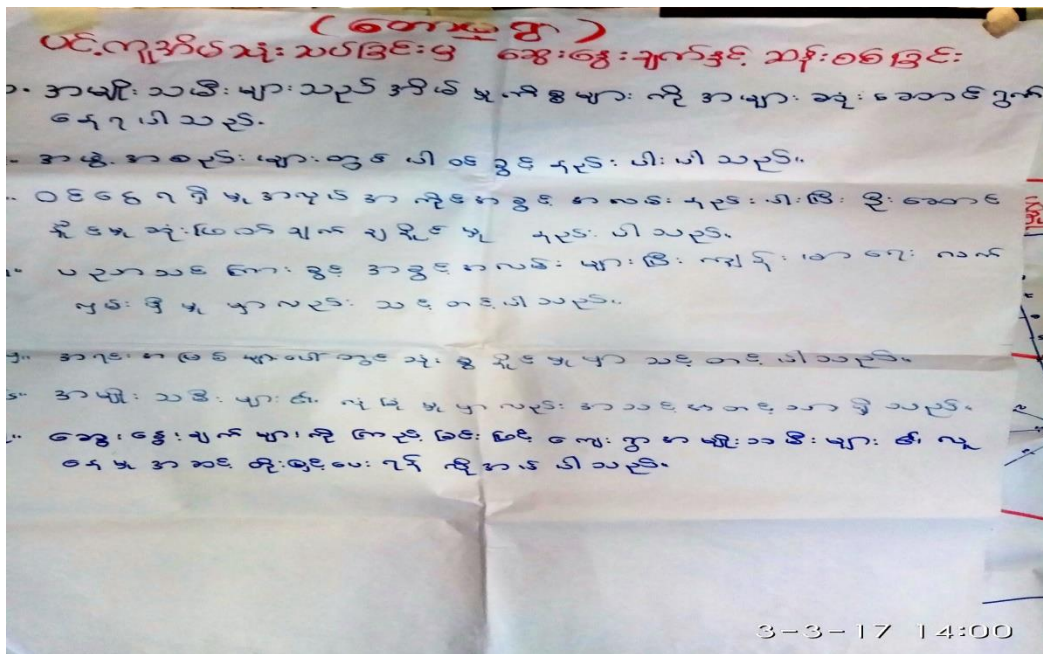 (တောယူရွာ)
ပင့်ကူအိမ်သုံးသပ်ခြင်းမှ ဆွေးနွေးချက်နှင့် ဆန်းစစ်ခြင်း
၁. အမျိုးသမီးများသည် အိမ်မှုကိစ္စများကို အများဆုံးဆောင်ရွက်
နေရပါသည်.
အဖွဲ့အစည်းများတွင် ပါဝင်ခွင့်နည်းပါးပါသည်။
ဝင်ငွေရရှိမှုအတွက် အလုပ်အကိုင်အခွင့်အလမ်းနည်းပါးပြီး ဦးဆောင်
နိုင်မှု ဆုံးဖြတ်ချက်ချနိုင်မှု နည်းပါသည်.
ပညာသင်ကြားခွင့် အခွင့်အလမ်းများပြီး ကျန်းမာရေးလက်
လှမ်းမှီမှုမှာလည်း သင့်တင့်ပါသည်..
၅.. အရင်းအမြစ်များပေါ်တွင် သုံးစွဲနိုင်မှုမှာ သင့်တင့်ပါသည်။
အမျိုးသမီးများ၏ လုံခြုံမှုမှာလည်း အသင့်အတင့်သာရှိသည်.
ဆွေးနွေးချက်များကို ကြည့်ခြင်းဖြင့် ကျေးရွာအမျိုးသမီးများ၏ လူ
နေမှုအဆင့်တိုးမြှင့်ပေးရန် လိုအပ်ပါသည်.
3-3-17 14:00